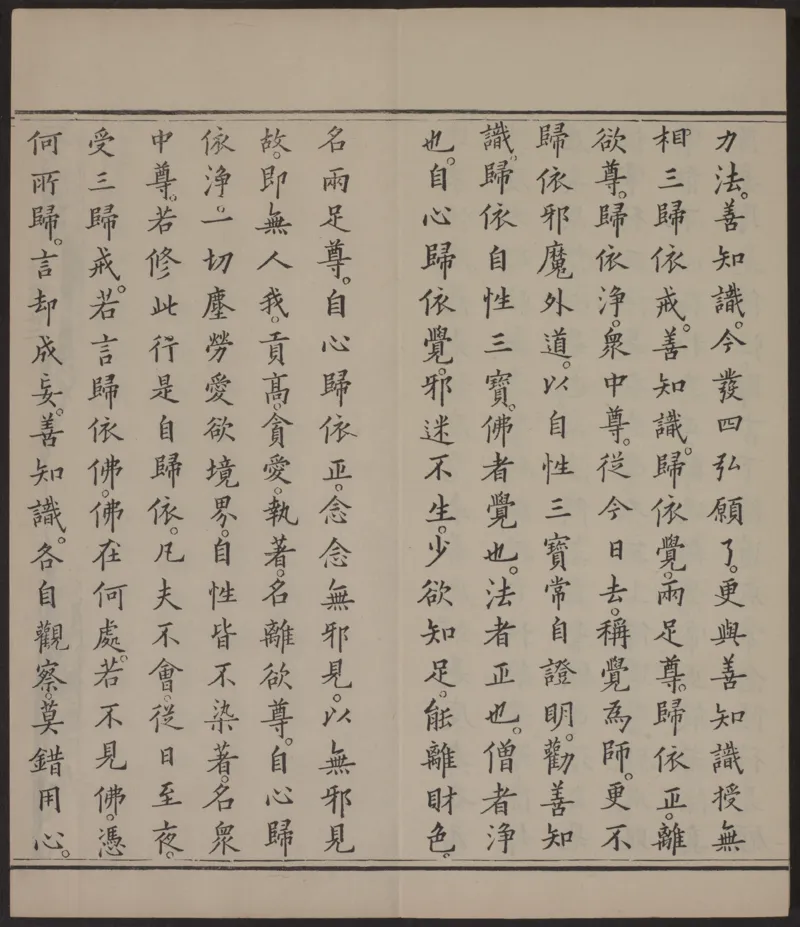 力法。善知識。今發四弘願了。更與善知識授無
相三歸依戒。善知識。歸依覺。兩足尊。歸依正。離
欲尊。歸依淨。眾中尊。從今日去。稱覺為師。更不
歸依邪魔外道。以自性三寶常自證明。勸善知
識。歸依自性三寶。佛者覺也。法者正也。僧者淨
也。自心歸依覺。邪迷不生。少欲知足。能離財色。
名兩足尊。自心歸依正。念念無邪見。以無邪見
故。即無人我。貢高。貪愛。執著。名離欲尊。自心歸
依淨。一切塵勞愛欲境界。自性皆不染著。名眾
中尊。若修此行是自歸依。凡夫不會。從日至夜。
受三歸戒。若言歸依佛。佛在何處。若不見佛。憑
何所歸。言却成妄。善知識。各自觀察。莫錯用心。